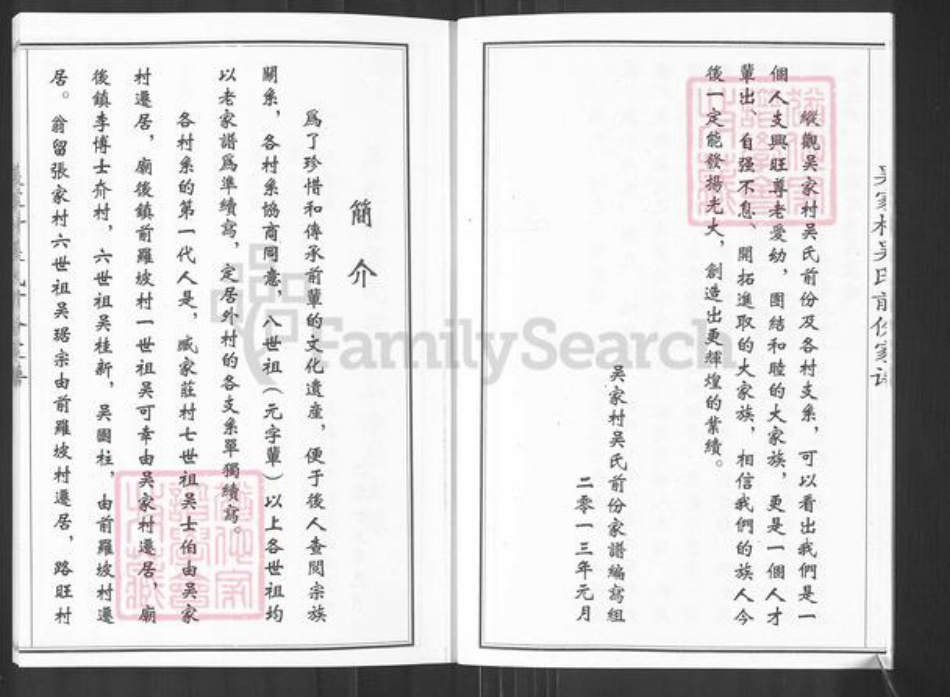 縱觀吳家村吳氏前份及各村支系，可以看出我們是一
個人支興旺尊老愛幼，團結和睦的大家族，更是一個人才
輩出，自强不息、開拓進取的大家族，相信我們的族人今
後一定能發揚光大，創造出更輝煌的業績。
吳家村吳氏前份家譜編寫組
二零一三年元月
簡介
爲了珍惜和傳承前輩的文化遺産，便于後人查閱宗族
關系，各村系協商同意，八世祖（元字輩）以上各世祖均
以老家譜爲準續寫，定居外村的各支系單獨續寫。
各村系的第一代人是，臧家莊村七世祖吳士伯由吳家
村遷居，廟後鎮前羅坡村一世祖吳可幸由吳家村遷居，廟
後鎮李博士夼村，六世祖吳桂新，吳國柱，由前羅坡村遷
居。翁留張家村六世祖吳琚宗由前羅坡村遷居，路旺村
吳家村吳氏前份家譜
FamilySearch